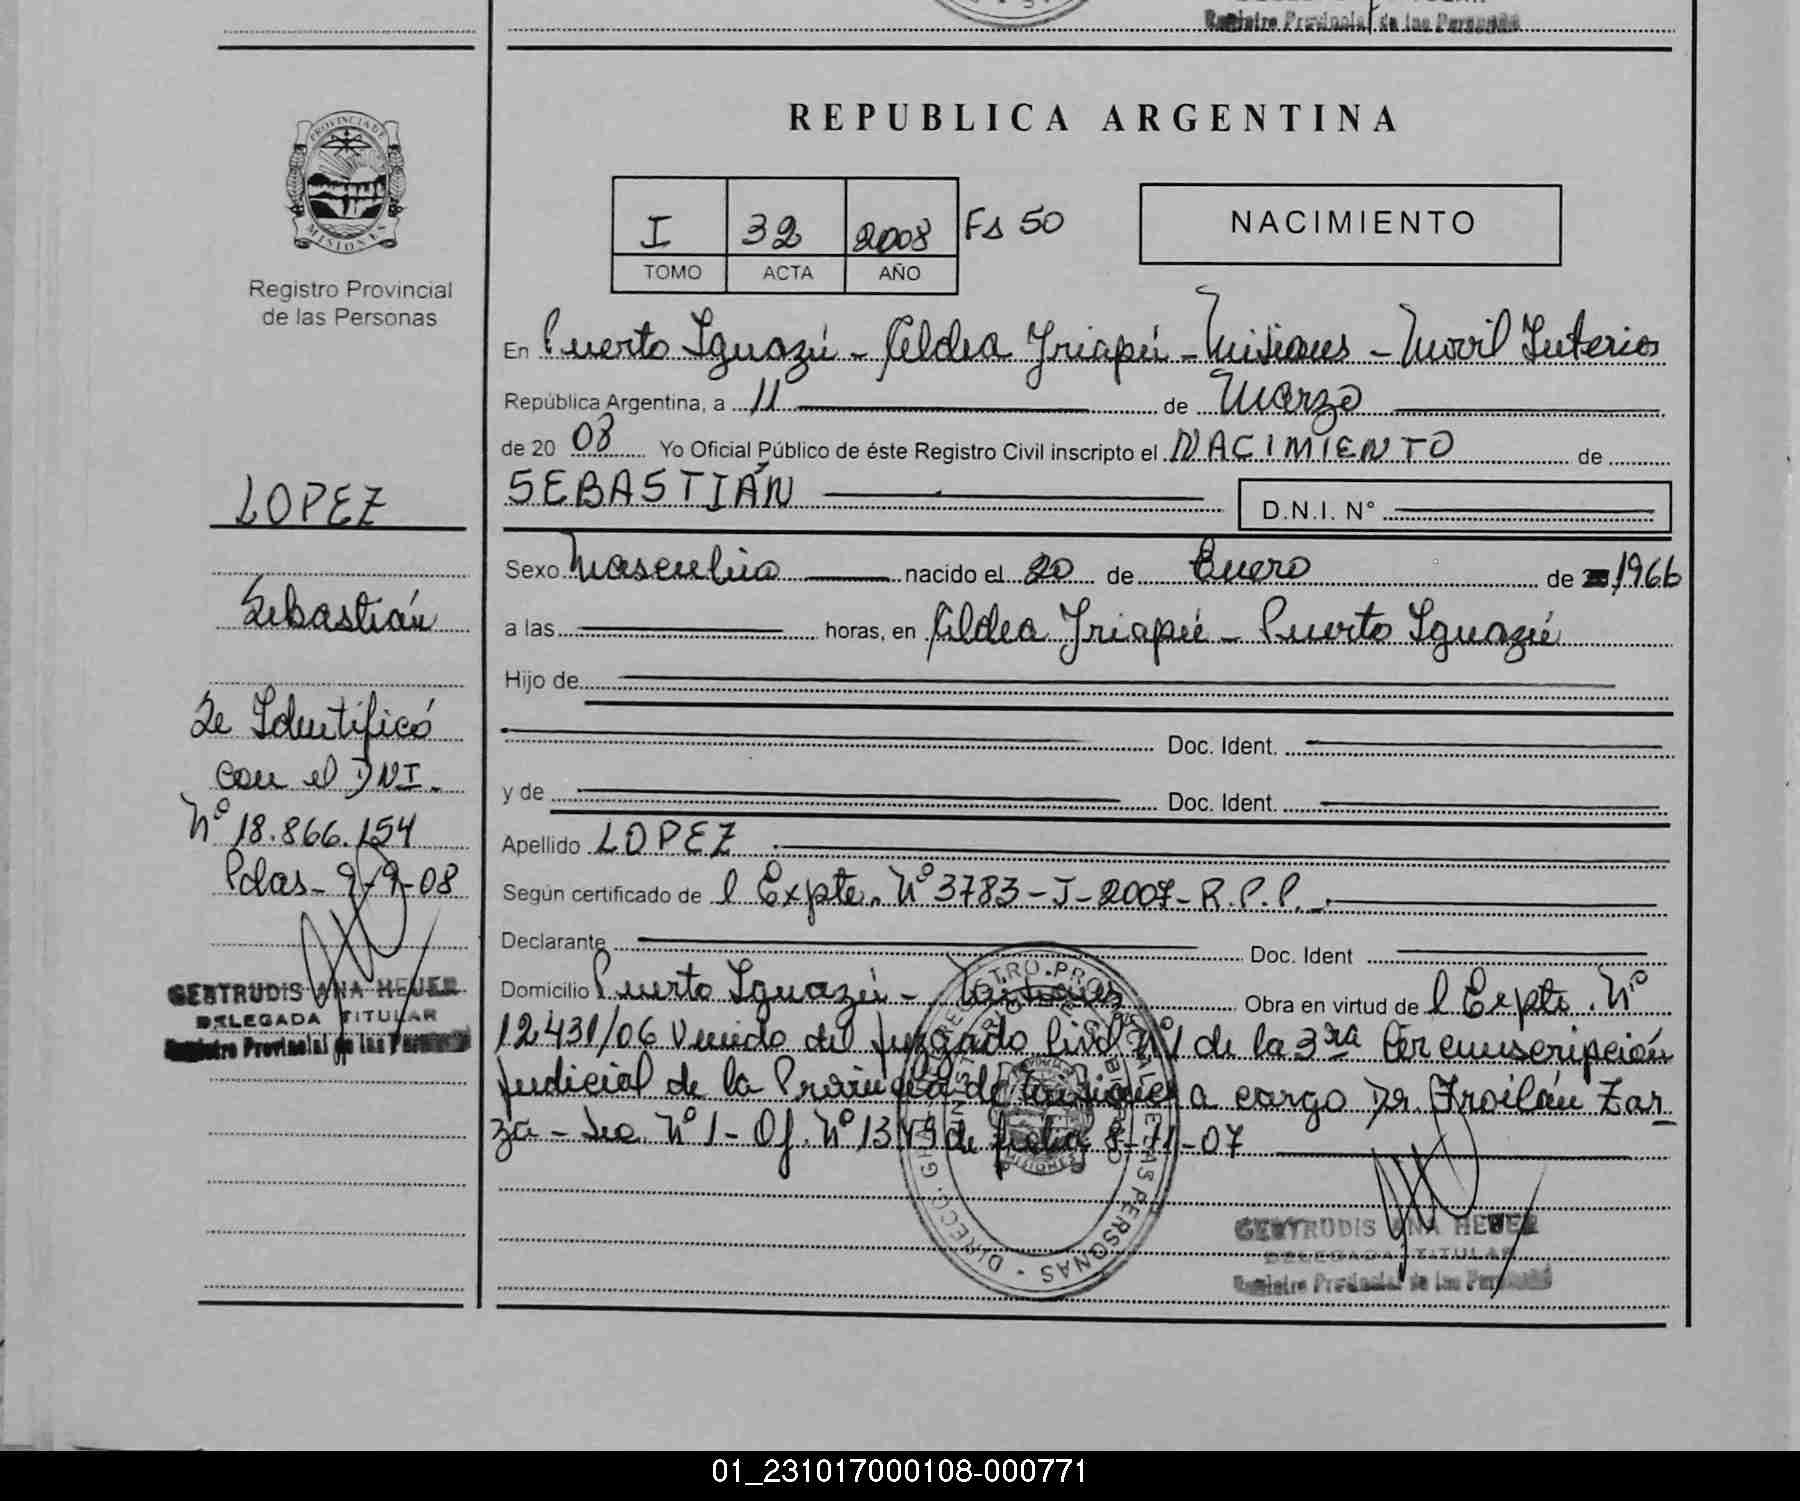 Registro Provincial de las Personas
PROVINCIA DE
MISIONES
Registro Provincial
de las Personas
LOPEZ
Sebastián
Se Identificó
con el DNI.
Nº 18.866.154
Pdas - 9-9-08
GERTRUDIS ANA HEUER
DELEGADA TITULAR
Registro Provincial de las Personas
REPUBLICA ARGENTINA
I 32 2008 Fs 50
TOMO ACTA AÑO
NACIMIENTO
En Puerto Iguazú - Aldea Yriapú - Misiones - Movil Interior
República Argentina, a 11 de Marzo
de 20 08 Yo Oficial Público de éste Registro Civil inscripto el NACIMIENTO de
SEBASTIÁN D.N.I. N°
Sexo Masculino nacido el 20 de Enero de 1966
a las horas, en Aldea Yriapú - Puerto Iguazú
Hijo de
Doc. Ident.
y de Doc. Ident.
Apellido LOPEZ
Según certificado de l Expte. Nº 3783-J-2007-R.P.P.
Declarante Doc. Ident
Domicilio Puerto Iguazú - Misiones Obra en virtud de l Expte. Nº
12431/06 Venido del Juzgado Civil Nº 1 de la 3ra Circunscripción
Judicial de la Provincia de Misiones a cargo Dr Froilán Zar
za - Sec. Nº 1 - Of. Nº de fecha 8-11-07
GERTRUDIS ANA HEUER
DELEGADA TITULAR
Registro Provincial de las Personas
01_231017000108-000771